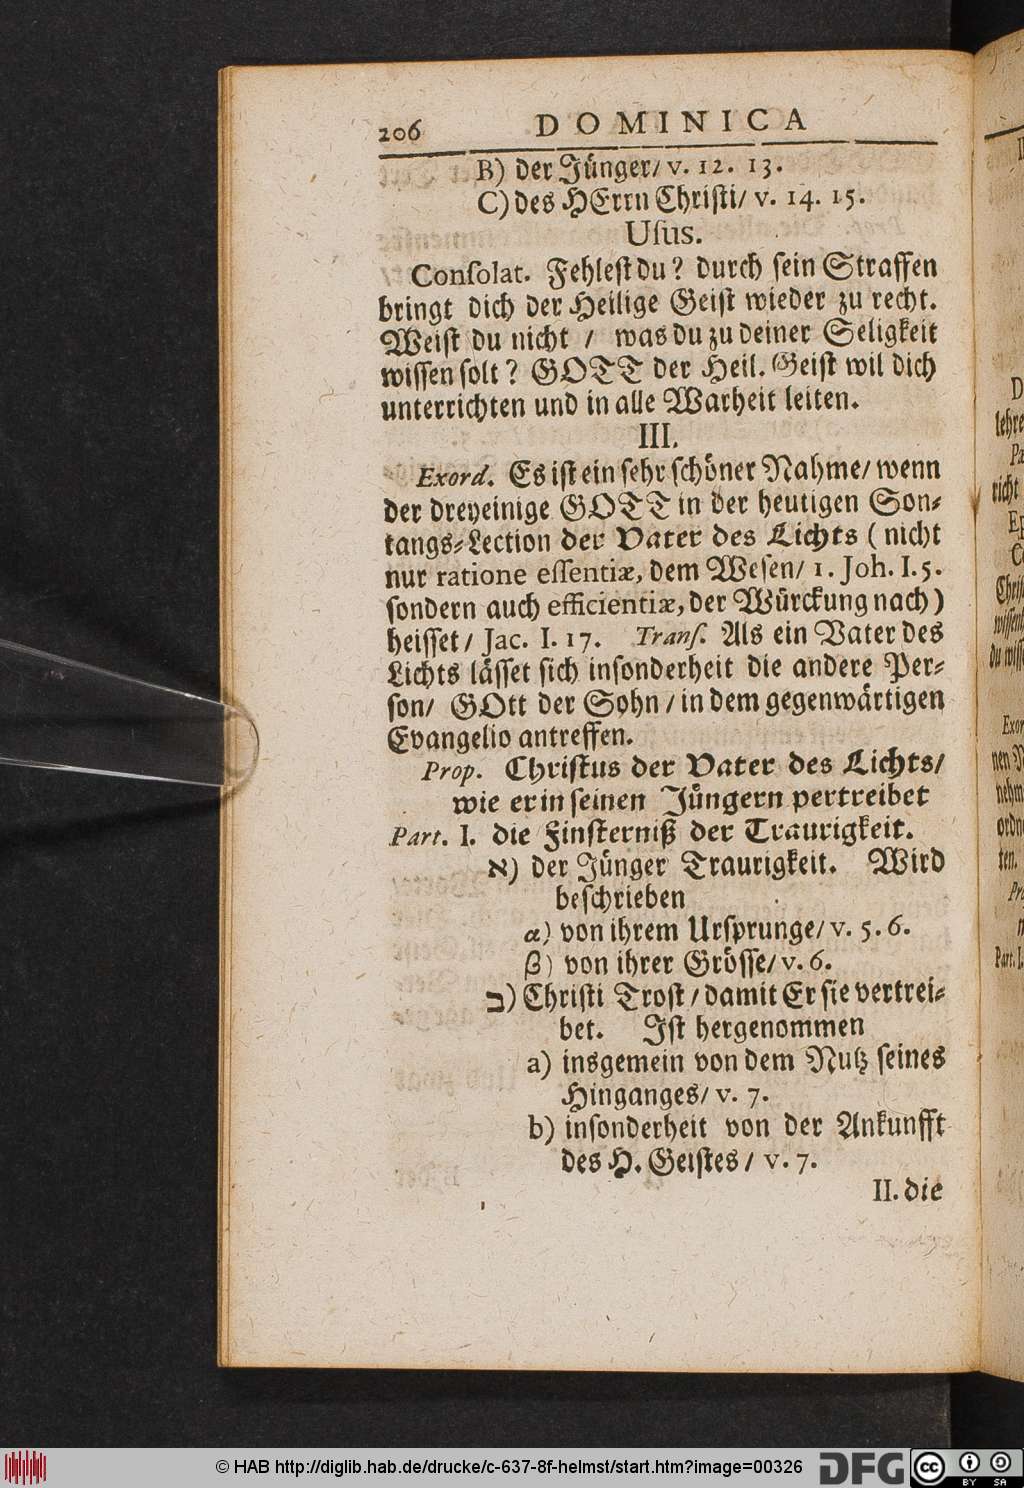 206 DOMINICA
B) der Jünger/ v. 12. 13.
C) des HErrn Christi/ v. 14. 15.
Uſus.
Conſolat. Fehleſt du? durch ſein Straffen
bringt dich der Heilige Geiſt wieder zu recht.
Weiſt du nicht / was du zu deiner Seligkeit
wiſſen ſolt? GOTT der Heil. Geiſt wil dich
unterrichten und in alle Warheit leiten.
III.
Exord. Es iſt ein ſehr ſchöner Nahme/ wenn
der dreyeinige GOTT in der heutigen Son-
tangs-Lection der Vater des Lichts ( nicht
nur ratione eſſentiæ, dem Weſen/ 1. Joh. I. 5.
ſondern auch efficientiæ, der Würckung nach)
heiſſet/ Jac. I. 17. Tranſ. Als ein Vater des
Lichts läſſet ſich inſonderheit die andere Per-
ſon/ GOtt der Sohn / in dem gegenwärtigen
Evangelio antreffen.
Prop. Chriſtus der Vater des Lichts/
wie er in ſeinen Jüngern pertreibet
Part. I. die Finſterniß der Traurigkeit.
א) der Jünger Traurigkeit. Wird
beſchrieben
α) von ihrem Urſprunge/ v. 5. 6.
β) von ihrer Gröſſe/ v. 6.
ב) Chriſti Troſt / damit Er ſie vertrei-
bet. Iſt hergenommen
a) insgemein von dem Nutz ſeines
Hinganges/ v. 7.
b) inſonderheit von der Ankunfft
des H. Geiſtes / v. 7.
II. die
© HAB http://diglib.hab.de/drucke/c-637-8f-helmst/start.htm?image=00326 DFG cc BY SA